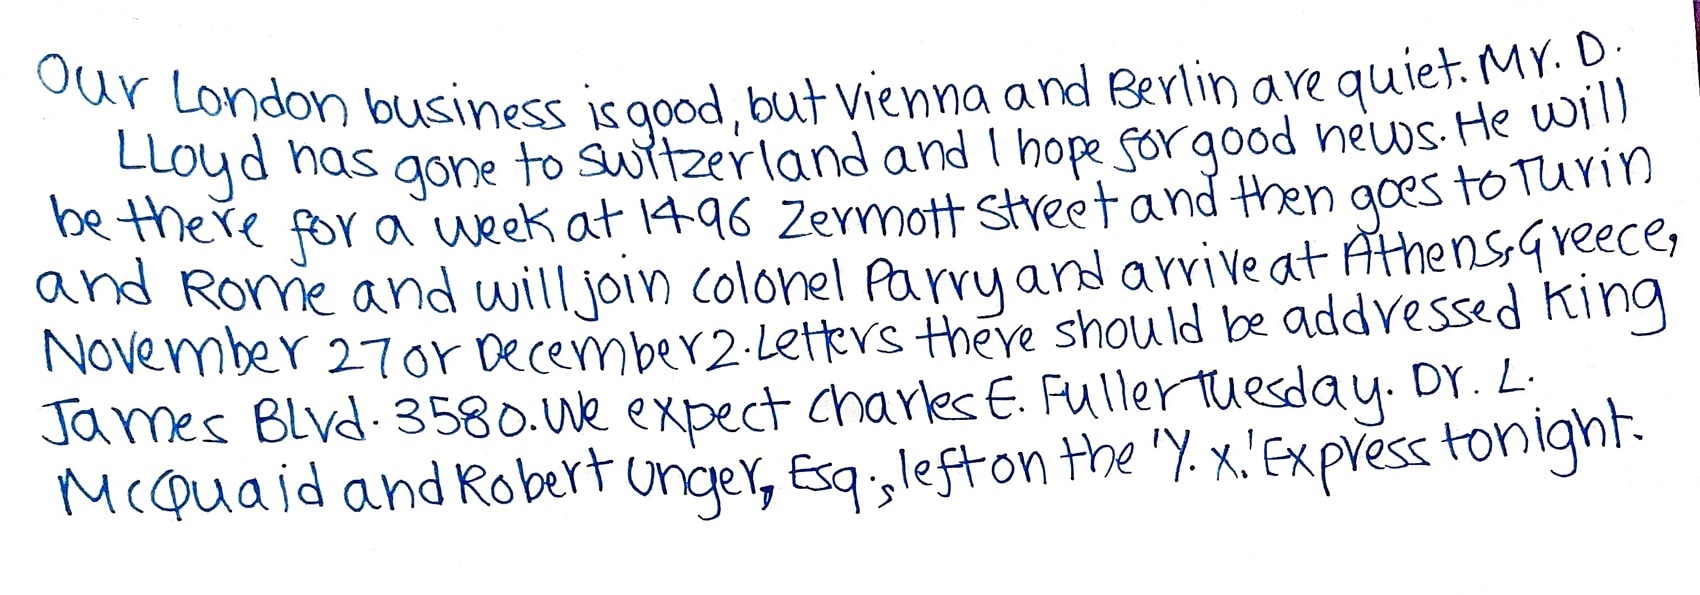 Our London business is good, but Vienna and Berlin are quiet. Mr. D.
Lloyd has gone to Switzerland and I hope for good news. He will
be there for a week at 1496 Zermott Street and then goes to Turin
and Rome and will join Colonel Parry and arrive at Athens, Greece,
November 27 or December 2. Letters there should be addressed King
James Blvd. 3580. We expect Charles E. Fuller Tuesday. Dr. L.
McQuaid and Robert Unger, Esq., left on the 'Y. X.' Express tonight.